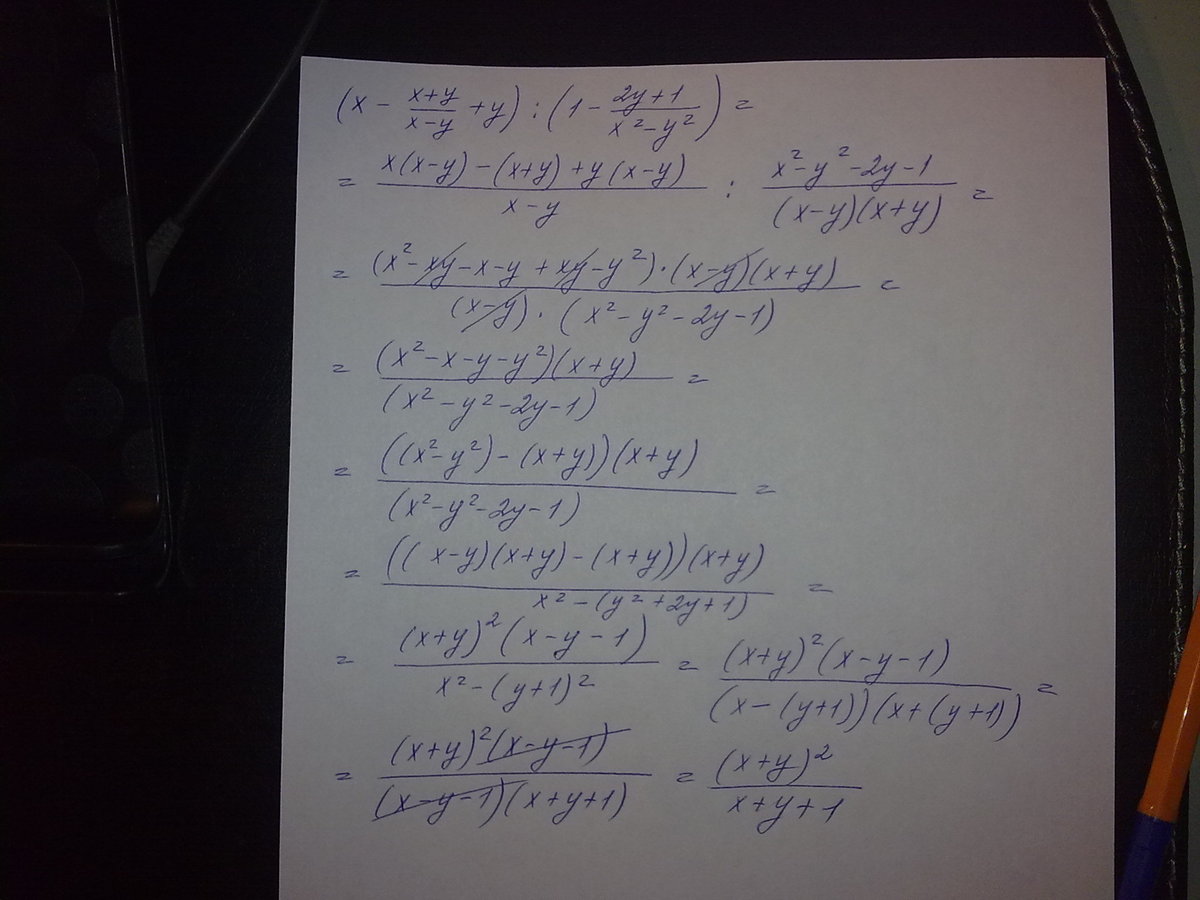 (x - (x+y)/(x-y) + y) : (1 - (2y+1)/(x² - y²)) =
= (x(x-y) - (x+y) + y(x-y))/(x-y) : (x² - y² - 2y - 1)/((x-y)(x+y)) =
= ((x² - xy - x - y + xy - y²)·(x-y)(x+y))/((x-y)·(x² - y² - 2y - 1)) =
= ((x² - x - y - y²)(x+y))/((x² - y² - 2y - 1)) =
= (((x² - y²) - (x+y))(x+y))/((x² - y² - 2y - 1)) =
= (((x-y)(x+y) - (x+y))(x+y))/(x² - (y² + 2y + 1)) =
= ((x+y)²(x-y-1))/(x² - (y+1)²) = ((x+y)²(x-y-1))/((x-(y+1))(x+(y+1))) =
= ((x+y)²(x-y-1))/((x-y-1)(x+y+1)) = (x+y)²/(x+y+1)